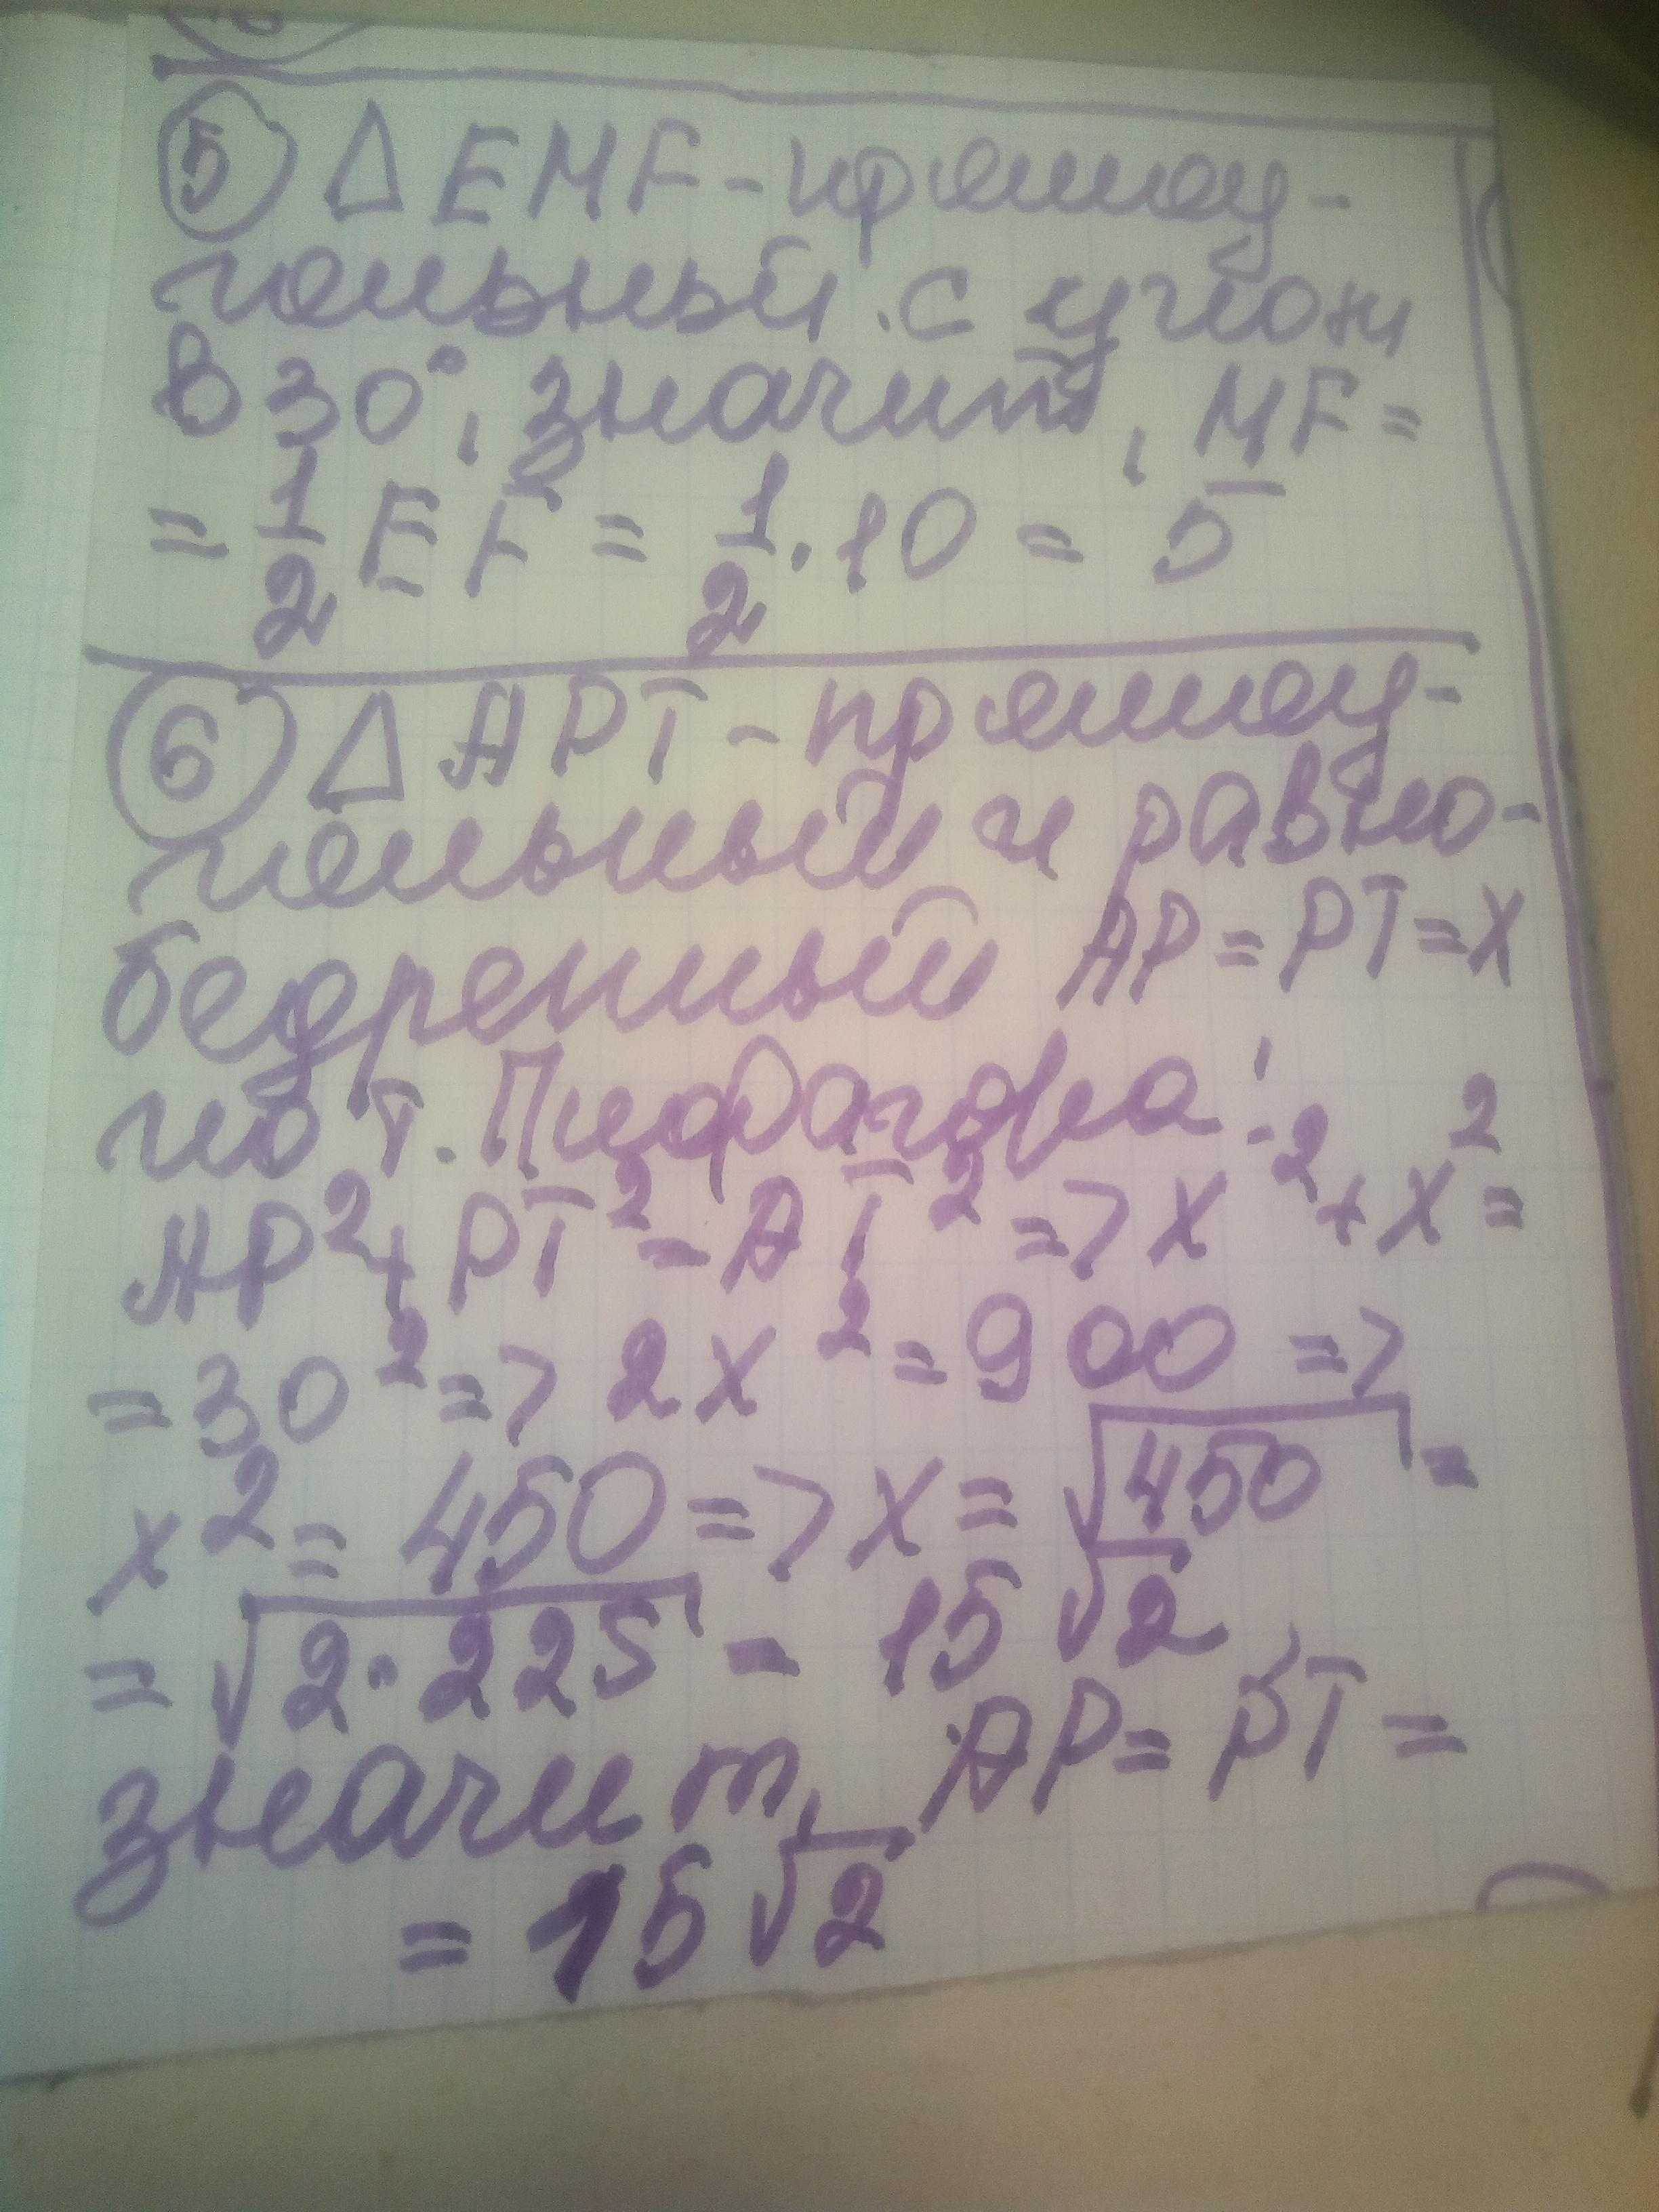 5 Δ EMF - прямоу-
гольный с углом
в 30°, значит, MF =
= 1/2 EF = 1/2 · 10 = 5
6 Δ APT - прямоу-
гольный и равно-
бедренный AP = PT = x
по т. Пифагора:
AP² + PT² = AT² => x² + x² =
= 30² => 2x² = 900 =>
x² = 450 => x = √450 =
= √2·225 = 15√2
значит, AP = PT =
= 15√2